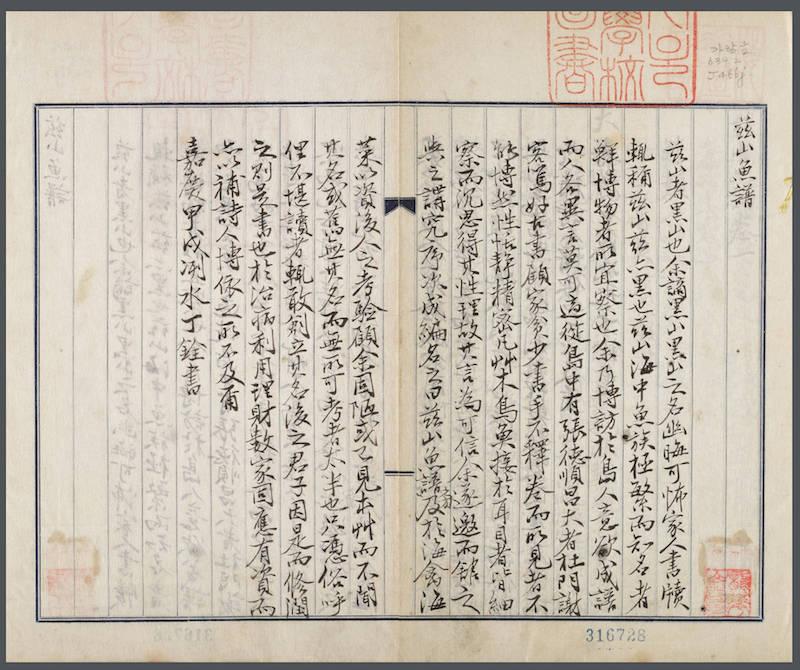 가람古
639.2
J466j
玆山魚譜
玆山者黑山也余謫黑山黑山之名幽晦可怖家人書牘
輒稱玆山玆亦黑也玆山海中魚族極繁而知名者
鮮博物者所宜察也余乃博訪於島人意欲成譜
而人各異言莫可適從島中有張德順昌大者杜門謝
客篤好古書顧家貧少書手不釋卷而所見者不
能博然性恬靜精密凡艸木鳥魚接於耳目者皆細
察而沉思得其性理故其言爲可信余遂邀而館之
與之講究序次成編名之曰玆山魚譜旁及於海禽海
菜以資後人之考驗顧余固陋或已見本艸而不聞
其名或舊無其名而無所可考者太半也只憑俗呼
俚不堪讀者輒敢創立其名後之君子因是而修潤
之則是書也於治病利用理財數家固應有資而
亦以補詩人博依之所不及爾
嘉慶甲戌洌水丁銓書
316728